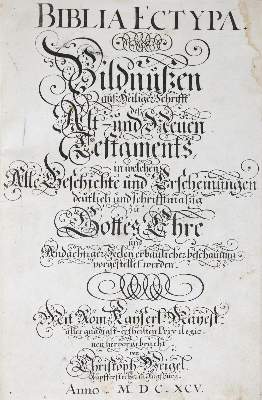 BIBLIA ECTYPA.
Bildnüßen
auß Heiliger Schrifft
Alt- und Neuen
Testaments,
in welchen
Alle Geschichte und Erscheinungen
deutlich und schrifftmäßig
zu
Gottes Ehre
und
Andächtiger Seelen erbaulicher beschauung
vorgestellet werden.
Mit Röm. Kayserl. Mayest.
aller gnädigst-ertheilten Privilegio
hervorgebracht
von
Christoph Weigel,
Kupfferstecher in Augspurg.
Anno M DC XCV.